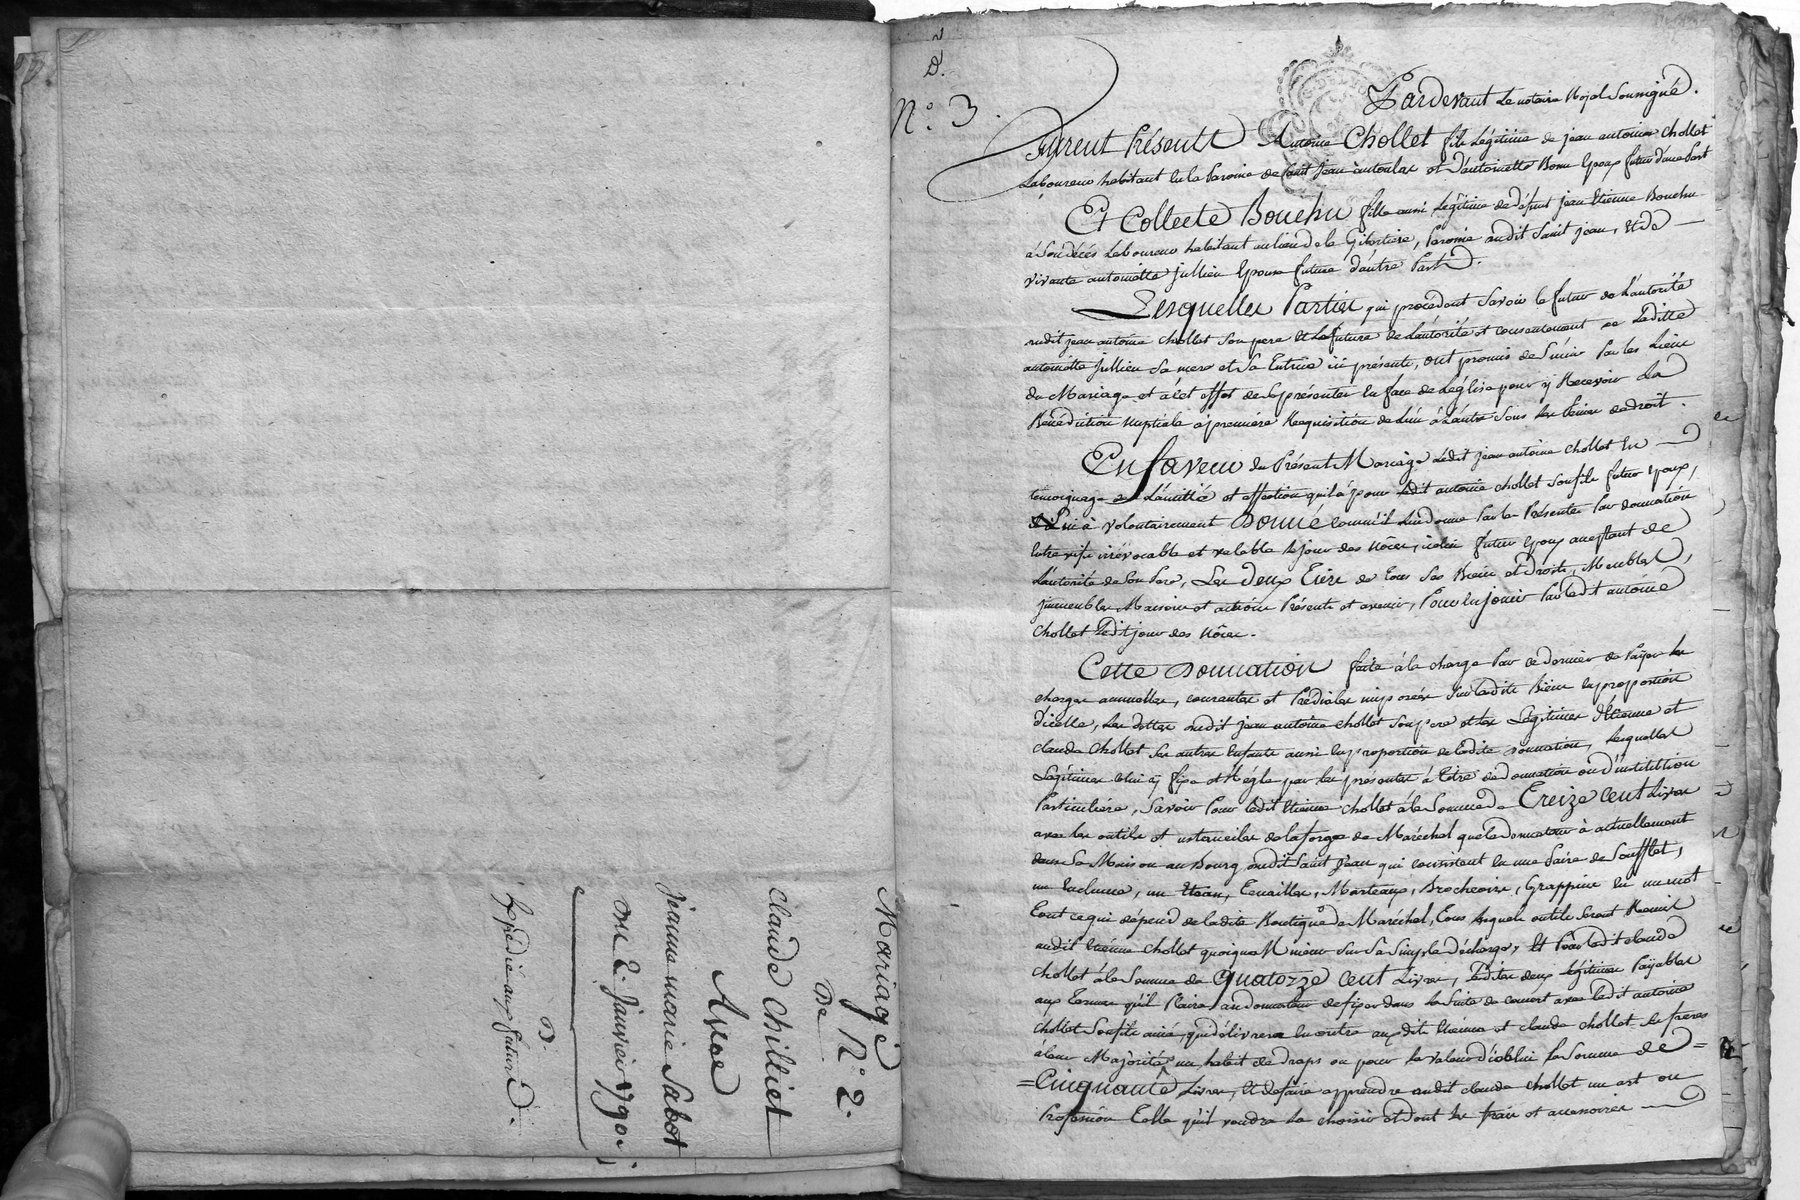 Mariage N° 2.
De
Claude Chilliet
Avec
jeanne marie Sabot
du 2. janvier 1790.
D.
Expédié aux futurs.
D.
N°. 3.
Pardevant Le notaire Royal Soussigné.
Furent Présents Antoine Chollet fils Légitime de jean antoine Chollet
Laboureur habitant en la Paroisse de Saint Jean et d'antoinette Epoux futur d'une Part
Et Collecte Bouchu fille aussi Légitime de défunt jean Etienne Bouchu
à Son décès Laboureur habitant au lieu de la Gibertiere, Paroisse audit Saint jean, Et de
vivante antoinette jullien Epouse future d'autre Part.
Lesquelles Parties qui procedant Savoir le futur de L'autorité
dudit jean antoine Chollet Son pere Et La future de L'autorité et consentement de Laditte
antoinette jullien Sa mere et Sa Tutrice ici présente, ont promis de S'unir Par les Liens
du Mariage et à cet effet de Se présenter en face de L'église pour y Recevoir La
Bénédiction nuptiale à premiere Requisition de L'un à L'autre Sous Les Peines de droit.
En faveur du Présent Mariage Ledit jean antoine Chollet En
temoignage de L'amitié et affection qu'il a pour Ledit antoine Chollet Son fils futur Epoux,
à volontairement Donné comme il Lui donne Par Les Présentes Par donnation
Entre vifs irrévocable et valable Le jour des Nôces, icelui futur Epoux acceptant de
L'autorité de Son Pere, Les Deux Tiers de Tous Ses Biens et Droits, Meubles,
jmmeubles Maisons et actions Présents et avenir, Pour En jouir Par Ledit antoine
Chollet Ledit jour des Nôces.
Cette Donnation faite à la charge Par ce dernier de Païer les
charges annuelles, courantes et Prediales imposées Sur Lesdits Biens En proportion
d'icelle, Les dettes dudit jean antoine Chollet Son pere et Les Légitimes d'Etienne et
Claude Chollet Ses autres Enfants aussi En proportion de Ladite Donnation, Lesquelles
Légitimes Celui cy fixe et Régle par Les présentes à titre de Donnation ou d'institution
Particuliére, Savoir Pour Ledit Etienne Chollet à la Somme de Treize Cent Livres
avec Les outils et ustencilles de la forge de Maréchal que Le Donnateur à actuellement
dans Sa Maison au Bourg dudit Saint Jean qui consistent En une Paire de Soufflet,
un Enclume, un Etau, Tenailles, Marteaux, Brochoirs, Grappins En un mot
Tout ce qui dépend de Ladite Boutique de Maréchal, Tous Lesquels outils Seront Remis
audit Etienne Chollet quoique Mineur Sur Sa Simple décharge, Et Pour Ledit Claude
Chollet à la Somme de Quatorze Cent Livres, Lesdites deux Légitimes Païables
aux Termes qu'il Plaira au Donnateur de fixer dans La Suite de concert avec Ledit antoine
Chollet Son fils ainé, qui délivrera En outre auxdits Etienne et Claude Chollet Ses freres
à Leur Majorité un habit de Draps ou pour La valeur d'icelui La Somme de =
= Cinquante Livres, Et de faire apprendre audit Claude Chollet un art ou
Profession Telle qu'il voudra La choisir et dont Les frais et accessoires